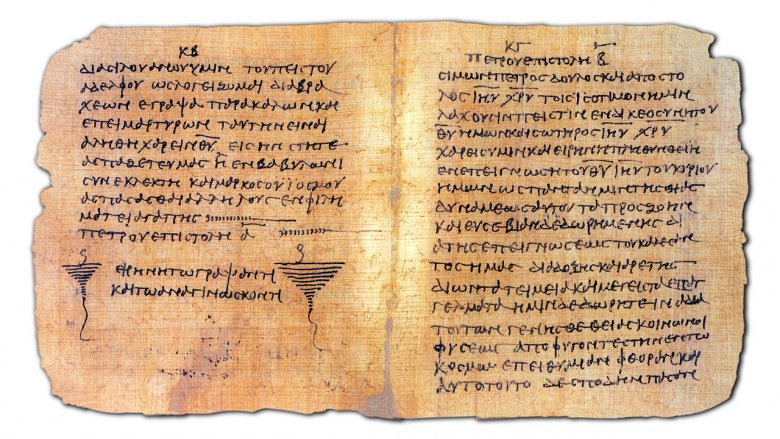 ΚΒ
ΔΙΑCΙΛΟΥΑΝΟΥΥΜΙΝ ΤΟΥΠΕΙCΤΟΥ
ΑΔΕΛΦΟΥ ΩCΛΟΓΕΙΖΟΜΑΙ ΔΙΑΒΡΑ
ΧΕΩΝ ΕΓΡΑΨΑ ΠΑΡΑΚΑΛΩΝΚΑΙ
ΕΠΕΙΜΑΡΤΥΡΩΝ ΤΑΥΤΗΝΕΙΝΑΙ
ΑΛΗΘΗΧΑΡΕΙΝΘ̅Υ̅ ΕΙCΗΝCΤΗΤΕ
ΑCΠΑΖΕΤΕΥΜΑC Η ΕΝΒΑΒΥΛΩΝΙ
CΥΝΕΚΛΕΚΤΗ ΚΑΙΜΑΡΚΟCΟΥΙΟCΜΟΥ
ΑCΠΑCΑCΘΑΙΑΛΛΗΛΟΥC ΕΝΦΙΛΗ
ΜΑΤΕΙΑΓΑΠΗC
ΠΕΤΡΟΥΕΠΙCΤΟΛΗ Α̅
ΕΙΡΗΝΗΤΩΓΡΑΨΑΝΤΙ
ΚΑΙΤΩΑΝΑΓΙΝΩCΚΟΝΤΙ
ΚΓ
ΠΕΤΡΟΥΕΠΙCΤΟΛΗ Β̅
CΙΜΩΝΠΕΤΡΟC ΔΟΥΛΟCΚΑΙΑΠΟCΤΟ
ΛΟC Ι̅Η̅Υ̅ Χ̅Ρ̅Υ̅ ΤΟΙCΙCΟΤΙΜΟΝΗΜΙΝ
ΛΑΧΟΥCΙΝΠΙCΤΙΝ ΕΝΔΙΚΕΟCΥΝΗΤΟΥ
Θ̅Υ̅ ΗΜΩΝΚΑΙCΩΤΗΡΟC Ι̅Η̅Υ̅ Χ̅Ρ̅Υ̅
ΧΑΡΕΙCΥΜΙΝΚΑΙΕΙΡΗΝΗΠΛΗΘΥΝΘΕΙΗ
ΕΝΕΠΕΙΓΝΩCΗΤΟΥΘ̅Υ̅ Ι̅Η̅Υ̅ ΤΟΥΚΥΡΙΟΥ
ΗΜΩΝΩCΠΑΝΤΑΗΜΙΝΤΗCΘΙΑC
ΔΥΝΑΜΕΩCΑΥΤΟΥ ΤΑΠΡΟCΖΩΗΝ
ΚΑΙΕΥCΕΒΙΑΝΔΕΔΩΡΗΜΕΝΗC ΔΙ
ΑΤΗCΕΠΕΙΓΝΩCΕΩCΤΟΥΚΑΛΕCΑΝ
ΤΟCΗΜΑC ΔΙΑΔΟΞΗCΚΑΙΑΡΕΤΗC
ΔΙΩΝΤΑΤΕΙΜΕΙΑΚΑΙΜΕΓΙCΤΑΕΠΑΓ
ΓΕΛΜΑΤΑ ΗΜΙΝΔΕΔΩΡΗΤΕΙΝΑΔΙΑ
ΤΟΥΤΩΝ ΓΕΝΗCΘΕΘΕΙΑCΚΟΙΝΩΝΟΙ
ΦΥCΕΩC ΑΠΟΦΥΓΟΝΤΕCΤΗΝΕΝΤΩ
ΚΟCΜΩ ΕΠΕΙΘΥΜΙΑΝ ΦΘΟΡΑΝΚΑΙ
ΑΥΤΟΤΟΥΤΟ ΔΕCΠΟΔΗΝΠΑCΑΝ